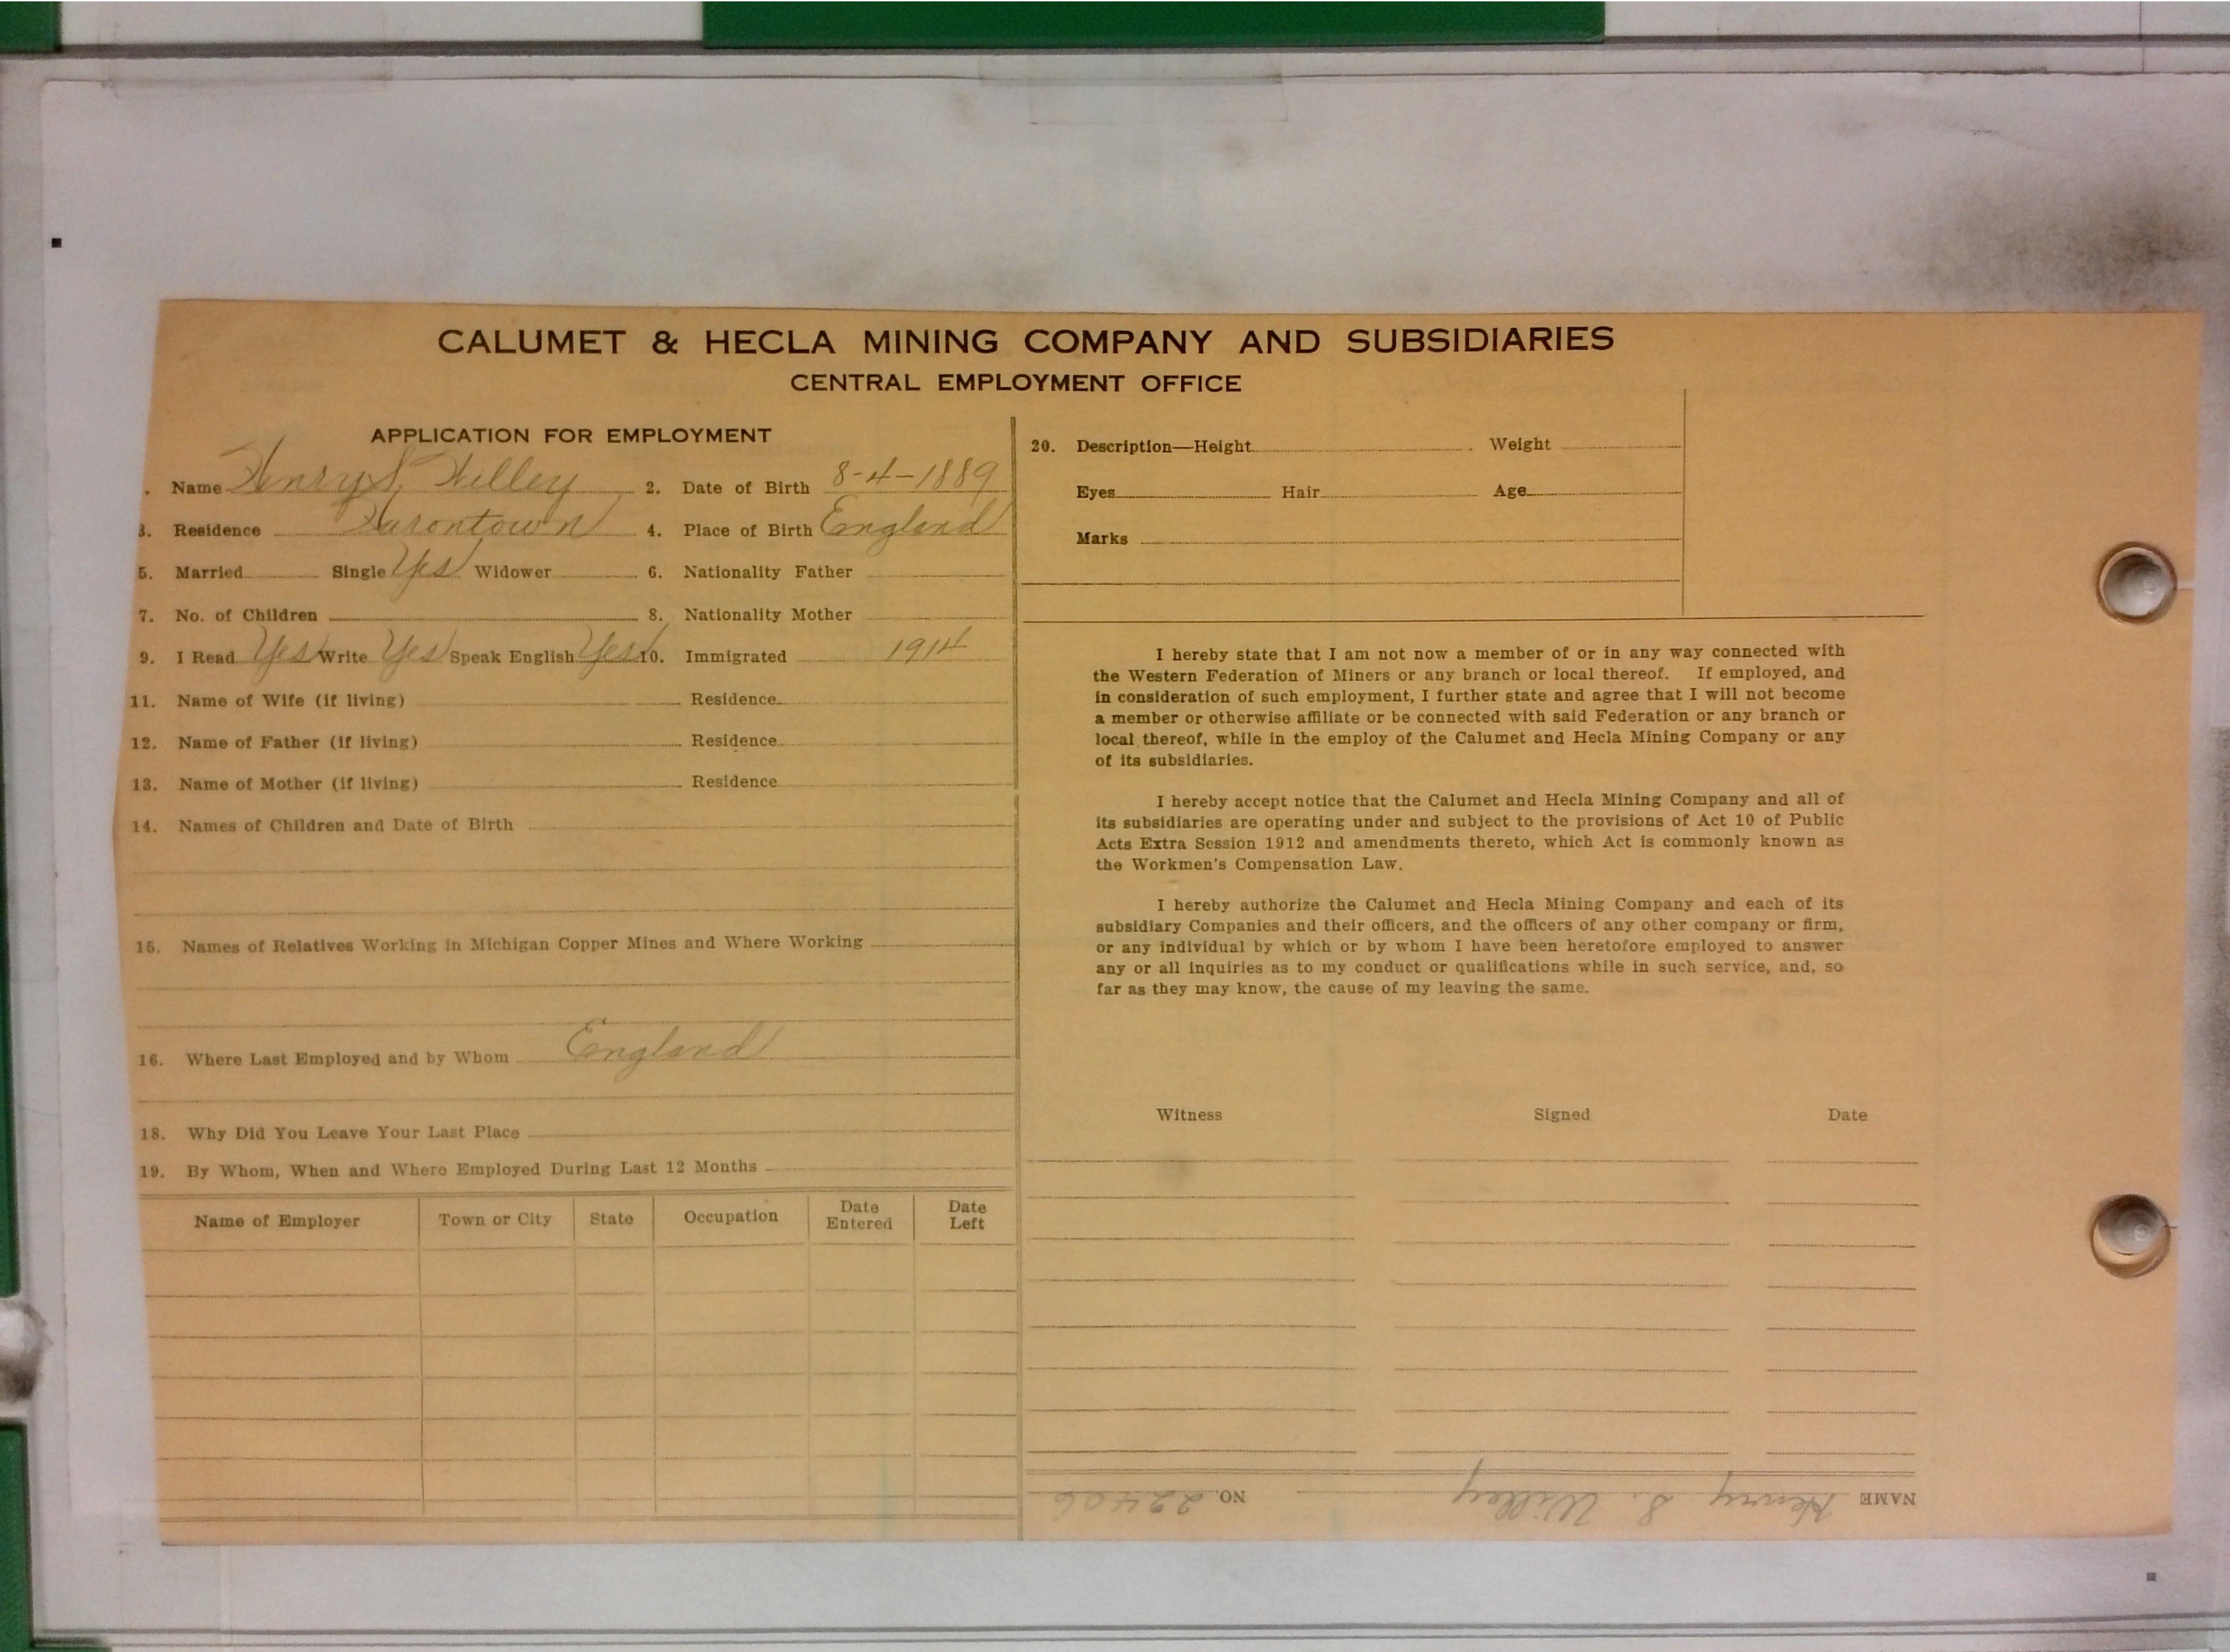 CALUMET & HECLA MINING COMPANY AND SUBSIDIARIES
CENTRAL EMPLOYMENT OFFICE
APPLICATION FOR EMPLOYMENT
. Name Henry S. Willey 2. Date of Birth 8-4-1889
3. Residence Hurontown 4. Place of Birth England
5. Married Single Yes Widower 6. Nationality Father
7. No. of Children 8. Nationality Mother
9. I Read Yes Write Yes Speak English Yes 10. Immigrated 1914
11. Name of Wife (if living) Residence
12. Name of Father (if living) Residence
13. Name of Mother (if living) Residence
14. Names of Children and Date of Birth
15. Names of Relatives Working in Michigan Copper Mines and Where Working
16. Where Last Employed and by Whom England
18. Why Did You Leave Your Last Place
19. By Whom, When and Where Employed During Last 12 Months
Name of Employer Town or City State Occupation Date Entered Date Left
20. Description—Height Weight
Eyes Hair Age
Marks
I hereby state that I am not now a member of or in any way connected with
the Western Federation of Miners or any branch or local thereof. If employed, and
in consideration of such employment, I further state and agree that I will not become
a member or otherwise affiliate or be connected with said Federation or any branch or
local thereof, while in the employ of the Calumet and Hecla Mining Company or any
of its subsidiaries.
I hereby accept notice that the Calumet and Hecla Mining Company and all of
its subsidiaries are operating under and subject to the provisions of Act 10 of Public
Acts Extra Session 1912 and amendments thereto, which Act is commonly known as
the Workmen's Compensation Law.
I hereby authorize the Calumet and Hecla Mining Company and each of its
subsidiary Companies and their officers, and the officers of any other company or firm,
or any individual by which or by whom I have been heretofore employed to answer
any or all inquiries as to my conduct or qualifications while in such service, and, so
far as they may know, the cause of my leaving the same.
Witness Signed Date
NAME Henry S. Willey NO. 22406